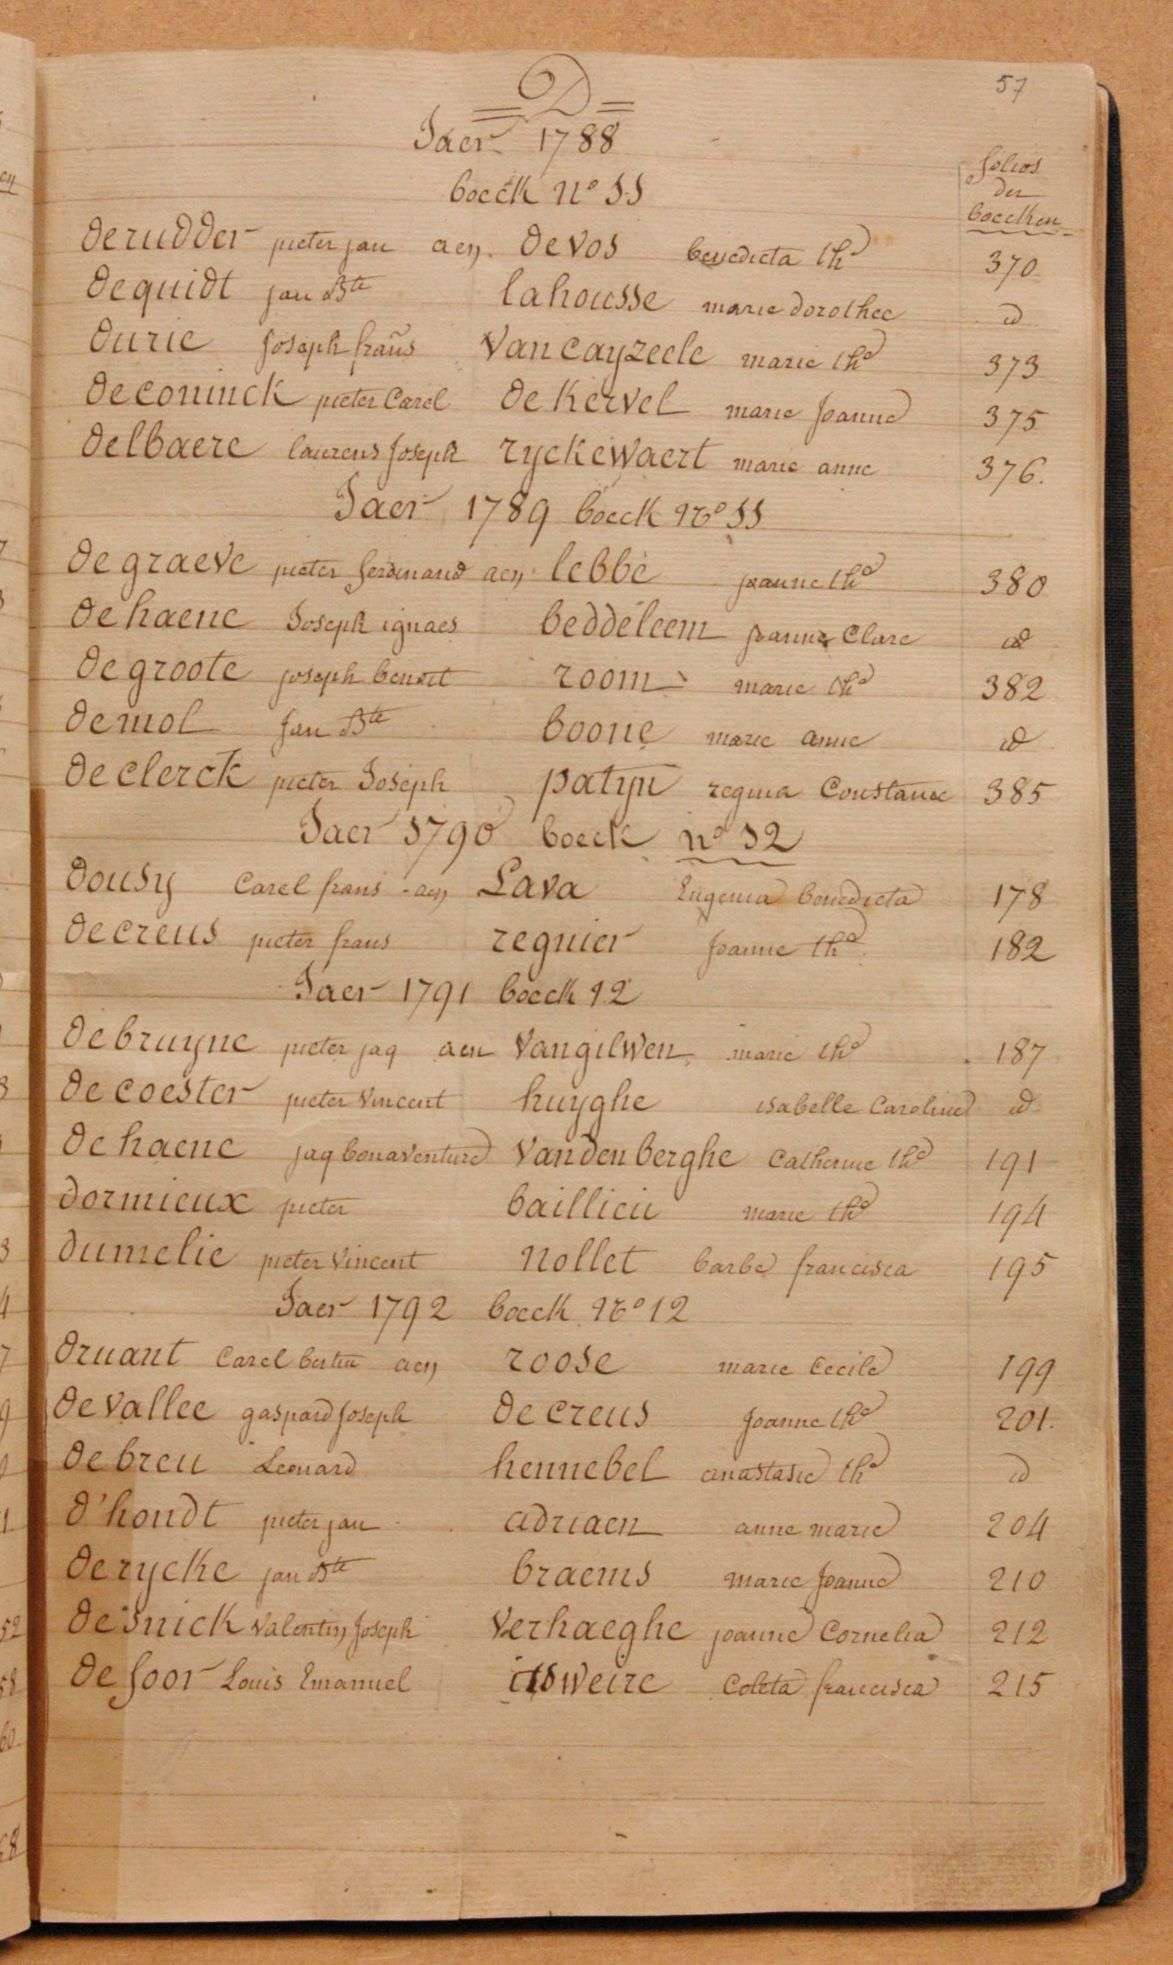 57
D
Jaer 1788
folios
der
boecken
boeck nº 11
derudder pieter jan aen devos benedicta thª 370
dequidt jan Bte lahousse marie dorothee id
durie Joseph frañs Vancayzeele marie thª 373
deconinck pieter Carel de Kervel marie Joanne 375
delbaere laurens Joseph ryckewaert marie anne 376.
Jaer 1789 boeck Nº 11
degraeve pieter ferdinand aen lebbe joanne thª 380
dehaene Joseph ignaes beddeleem joanne Clare id
de groote joseph benoit room marie thª 382
demol Jan Bte boone marie anne id
declerck pieter Joseph patyn regina Constance 385
Jaer 1790 boeck nº 12
dousy Carel frans aen Lava Eugenia benedicta 178
decreus pieter frans regnier Joanne thª 182
Jaer 1791 boeck 12
debruyne pieter jaq aen vangilwen marie thª 187
de coester pieter Vincent huyghe isabelle Caroline id
de haene jaq bonaventure Vandenberghe Catherine thª 191
dormieux pieter baillieu marie thª 194
dumelie pieter Vincent Nollet barbe francisca 195
Jaer 1792 boeck Nº 12
druant Carel bertin aen roose marie Cecile 199
devallee gaspard Joseph decreus Joanne thª 201.
debreu Leonard hennebel anastasie thª id
d'hondt pieter jan adriaen anne marie 204
derycke jan Bte braems marie Joanne 210
desnick Valentin Joseph Verhaeghe joanne Cornelia 212
de foor Louis Emanuel itsweire Coleta francisca 215